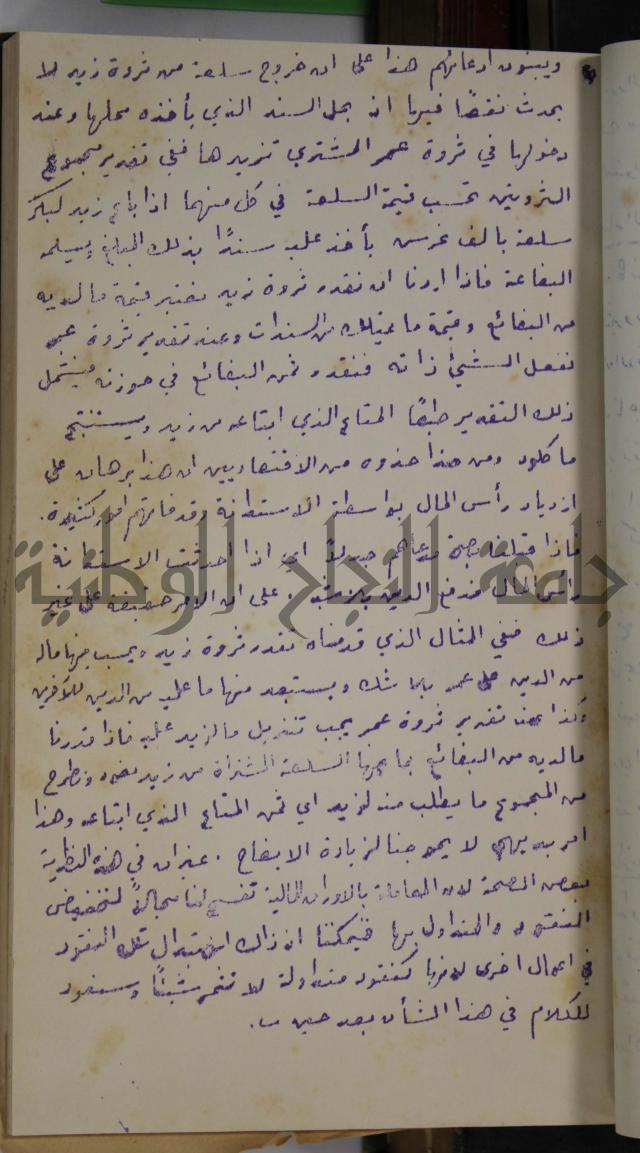 ويبنون ادعائهم هذا على ان خروج سلعة من ثروة زيد لا
يحدث نقصًا فيها اذ يحل السند الذي يأخذه محلها وعند
دخولها في ثروة عمر المشتري تزيدها ففي تقدير مجموع
الثروتين تحسب قيمة السلعة في كل منهما اذا باع زيد لبكر
سلعة بالف غرس يأخذ عليه سندًا بذلك المبلغ ويسلمه
البضاعة فاذا اردنا ان نقدر ثروة زيد نعتبر قيمة ما لديه
من البضائع وقيمة ما يمتلك من السندات وعند تقدير ثروة عمر
نفعل الشيئ ذاته فنقدر ثمن البضائع في حوزته فيشمل
ذلك التقدير طبعًا المتاع الذي ابتاعه من زيد ويستنتج
ماكلود ومن هذا حذوه من الاقتصاديين ان هذا برهان على
ازدياد رأس المال بواسطة الاستدانة وقد فاتهم امور كثيرة.
فاذا قبلنا بصحة مدعاهم جدلاً اي اذا احدثت الاستدانة
رأس المال فدفع الدين يلاشيه. على ان الامر حقيقة على غير
ذلك ففي المثال الذي قدمناه تقدر ثروة زيد ويحسب منها ماله
من الدين على عمر بلا شك ويستبعد منها ما عليه من الدين للآخرين
وكذا عند تقدير ثروة عمر يجب تنزيل ما لزيد عليه فاذا قدرنا
ما لديه من البضائع بما فيها السلعة المشتراة من زيد ونطرح
من المجموع ما يطلب منه لزيد اي ثمن المتاع الذي ابتاعه وهذا
امر بديهي لا يحوجنا لزيادة الايضاح. غير ان في هذه النظرية
بعض الصحة لان المعاملة بالاوراق المالية تفسح لنا مجالاً لتخفيض
النقود المتداول بها فيمكننا اذ ذاك استبدال تلك النقود
في اعمال اخرى لانها كنقود متداولة لا تثمر شيئًا وسنعود
للكلام في هذا الشأن بعد حين
جامعة النجاح الوطنية